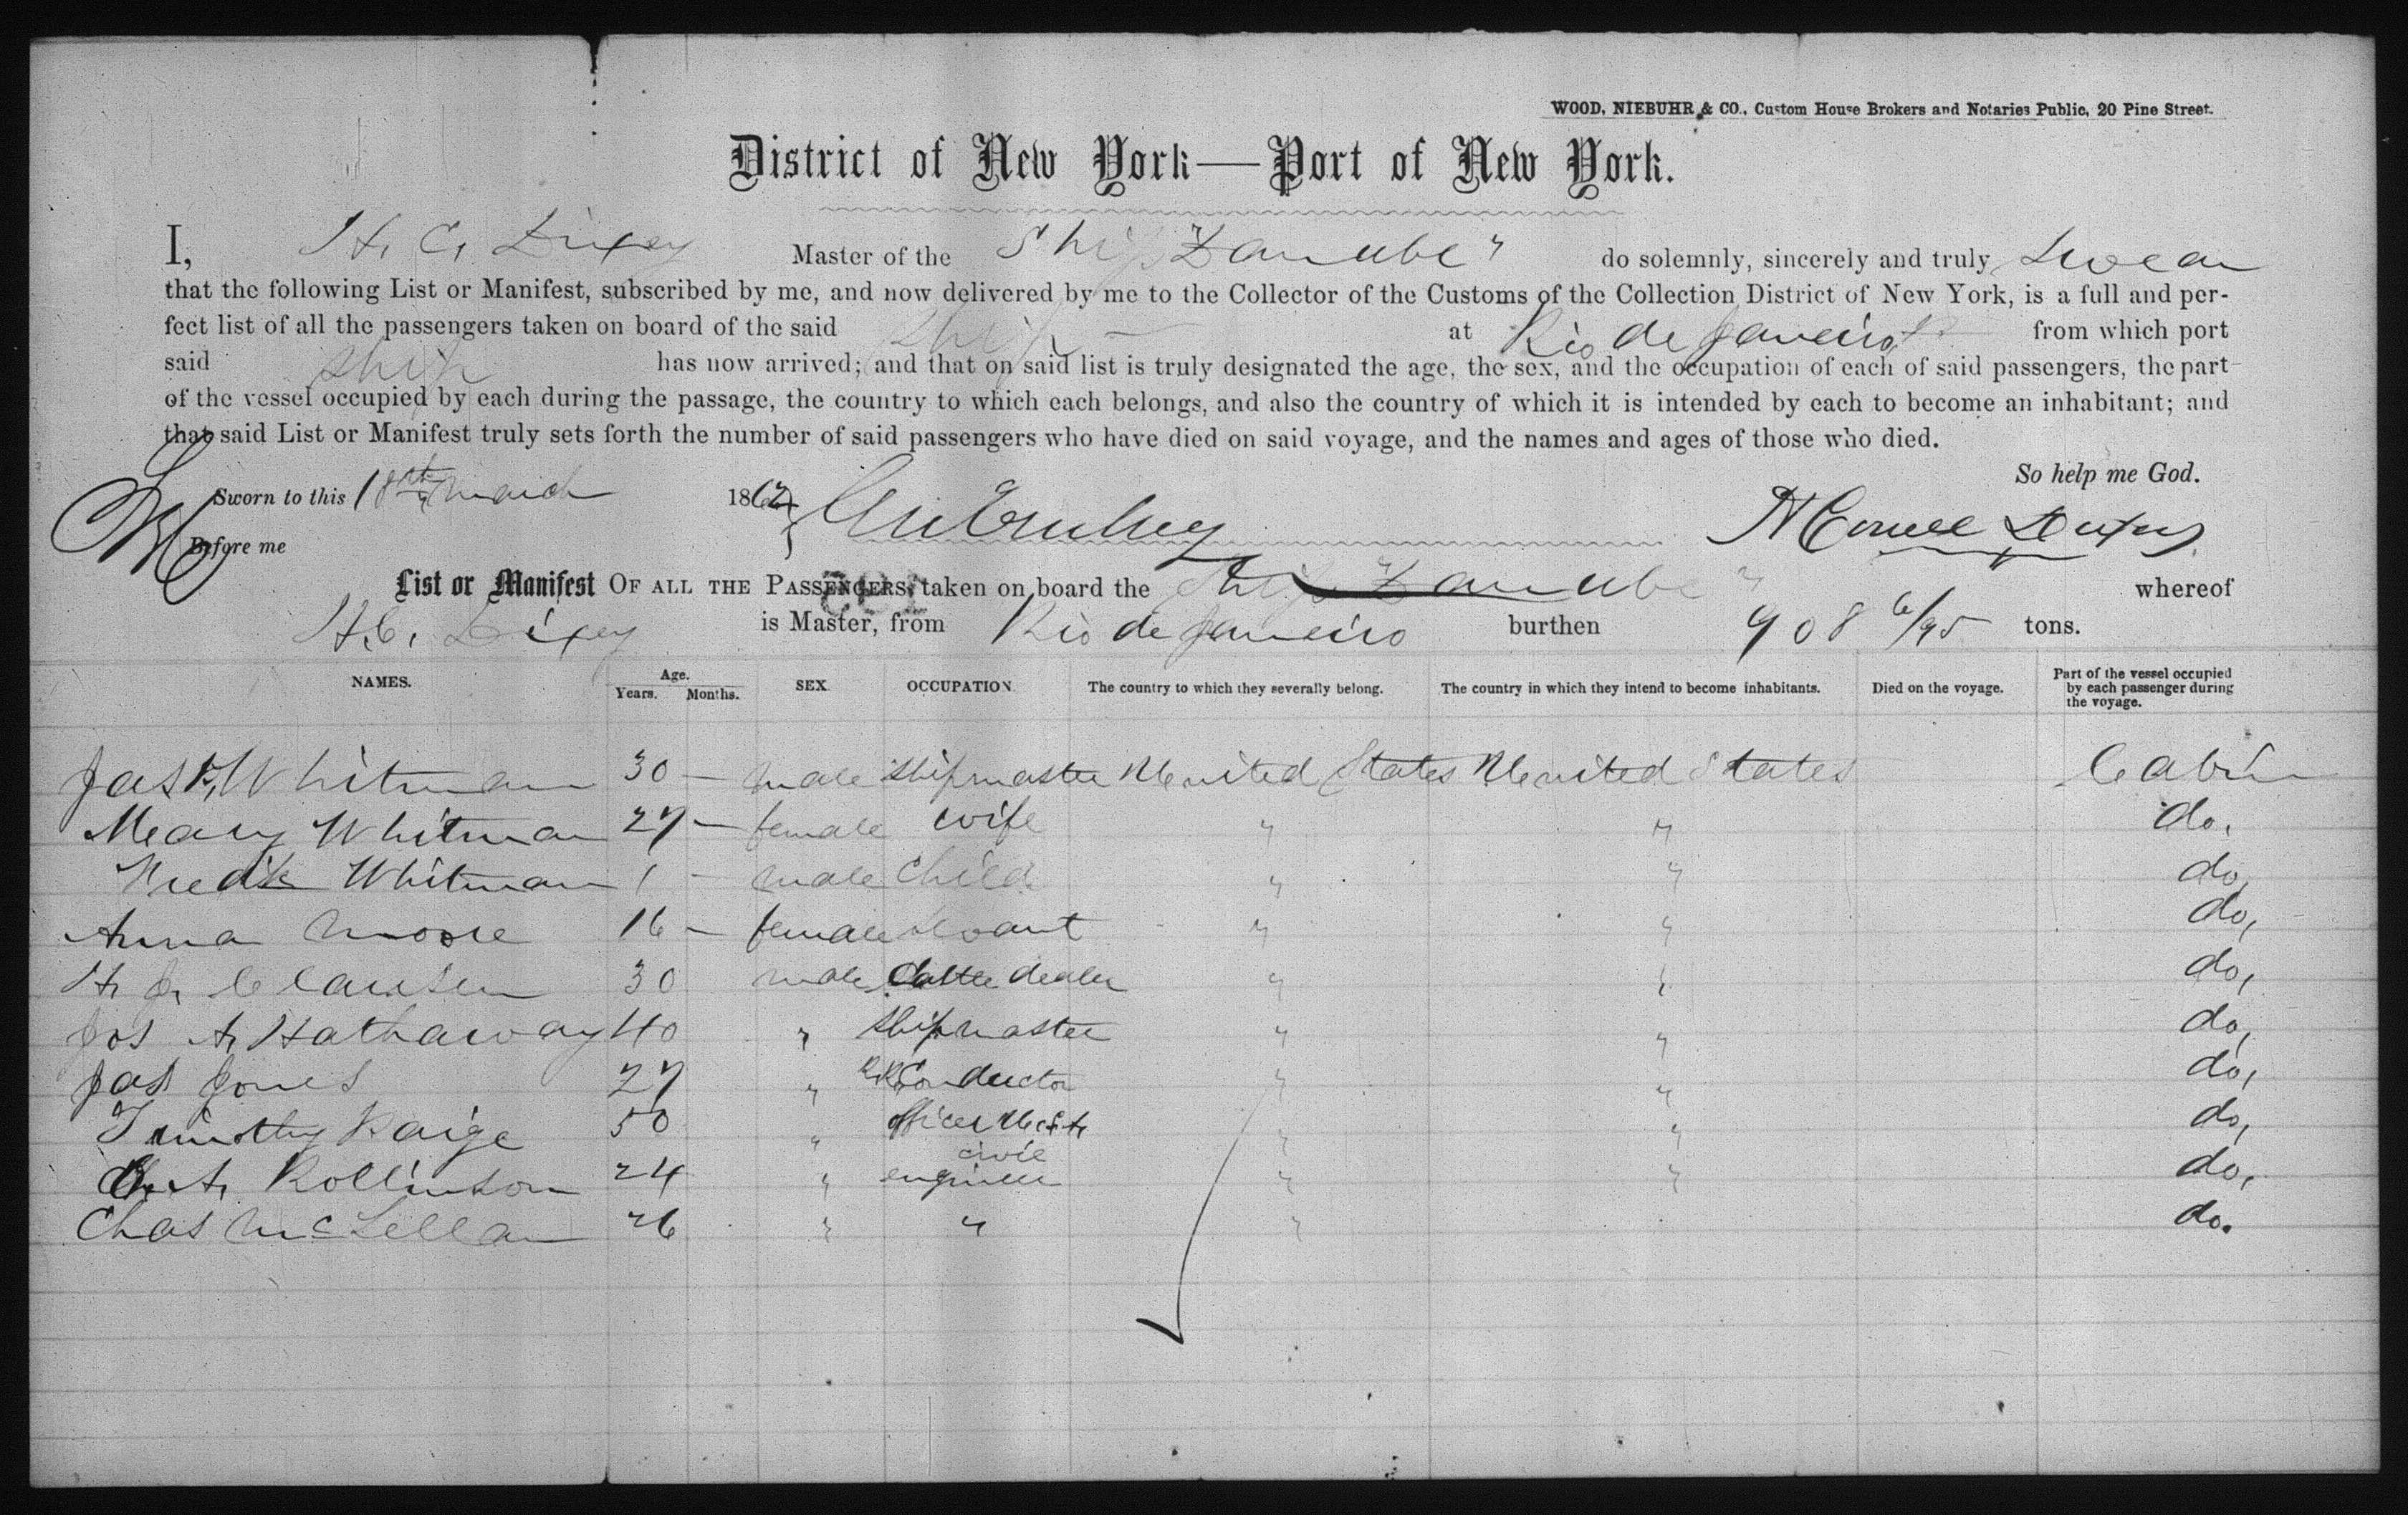 WOOD, NIEBUHR & CO., Custom House Brokers and Notaries Public, 20 Pine Street.
District of New York—Port of New York.
I, H. C. Dixey Master of the Ship "Danube" do solemnly, sincerely and truly Swear
that the following List or Manifest, subscribed by me, and now delivered by me to the Collector of the Customs of the Collection District of New York, is a full and per-
fect list of all the passengers taken on board of the said Ship at Rio de Janeiro from which port
said Ship has now arrived; and that on said list is truly designated the age, the sex, and the occupation of each of said passengers, the part
of the vessel occupied by each during the passage, the country to which each belongs, and also the country of which it is intended by each to become an inhabitant; and
that said List or Manifest truly sets forth the number of said passengers who have died on said voyage, and the names and ages of those who died.
So help me God.
Sworn to this 18th March 1862
Before me
List or Manifest OF ALL THE PASSENGERS taken on board the Ship "Danube" whereof
H. C. Dixey is Master, from Rio de Janeiro burthen 908 6/95 tons.
NAMES. Age. Years. Months. SEX. OCCUPATION. The country to which they severally belong. The country in which they intend to become inhabitants. Died on the voyage. Part of the vessel occupied by each passenger during the voyage.
Jas F. Whitman 30 — male Shipmaster United States United States Cabin
Mary Whitman 27 — female wife " " do.
Fredk Whitman 1 - male Child " " do,
Anna Moore 16 — female Servant " " do,
H. J. Clausen 30 male Cattle dealer " " do,
Jos A. Hathaway 40 " Shipmaster " " do,
Jas Jones 27 " R.R. Conductor " " do,
Timothy Paige 50 " officer " " do,
A. Rollinson 24 " civil engineer " " do,
Chas McLellan 26 " " " do.